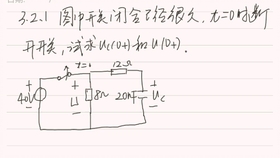 3.2.1 图中开关闭合已经很久，t=0时断
开开关，试求Uc(0+)和U(0+).
t=0
12Ω
40V
+
U
-
8Ω
20nF
+
Uc
-